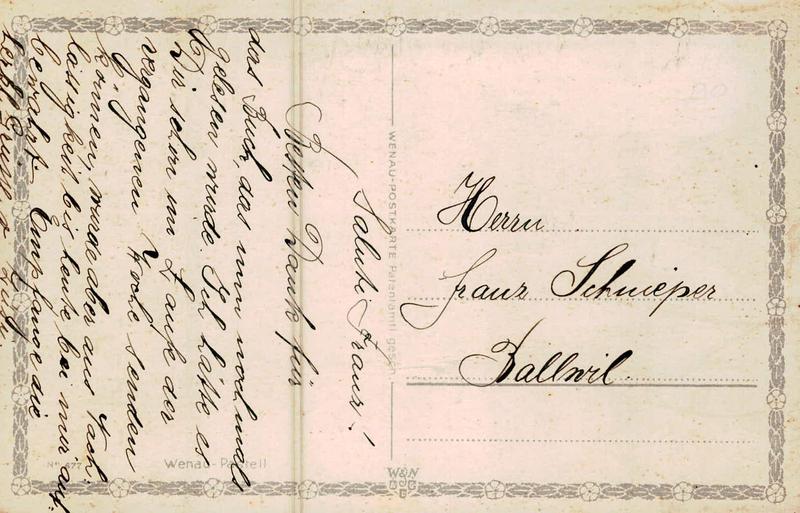 Salute Franz!
Besten Dank für
das Buch, das nun nochmals
gelesen wurde. Ich hätte es
Dir schon im Laufe der
vergangenen Woche senden
können, wurde aber aus Nach-
lässigkeit bis heute bei mir auf-
bewahrt. Empfange die
WENAU-POSTKARTE Patentamtl. gesch.
Herrn
Franz Schnieper
Ballwil.
No. 677
Wenau-Pastell
W&N